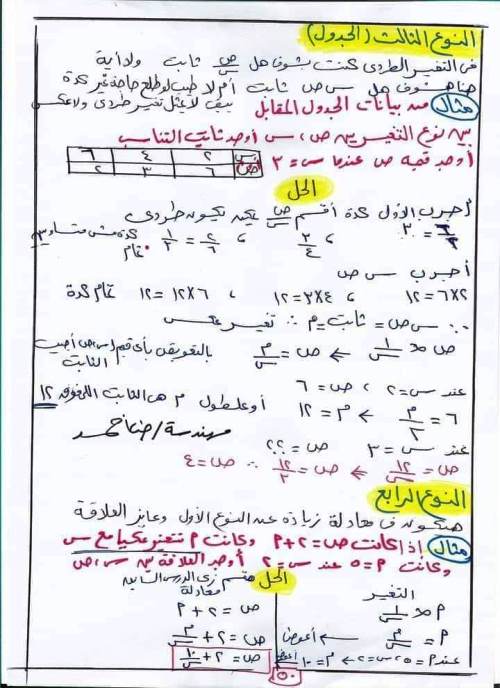 النوع الثالث (الجدول)
فى التغير الطردى كنت بشوف هل ص/س ثابت ولا أية
هنا هنشوف هل س ص ثابت أم لا طيب لو طلع حاجة غير كدة
يبقى لا يمثل تغير طردى ولا عكسى
مثال من بيانات الجدول المقابل
بين نوع التغير بين ص ، س أوجد ثابت التناسب
أوجد قيمة ص عندما س = ٣
س ٢ ٤ ٦
ص ٦ ٣ ٢
الحل
أجرب الأول كدة أقسم ص/س يمكن يكون طردى
٦/٢ = ٣ ، ٣/٤ ، ٢/٦ = ١/٣ كدة مش متساويين
تمام
أجرب س ص
٢×٦ = ١٢ ، ٤×٣ = ١٢ ، ٦×٢ = ١٢ تمام كدة
∴ س ص = ثابت = م ∴ تغير عكسى
ص ∝ ١/س ⇐ ص = م/س بالتعويض بأى قيم (س، ص) أجيب
الثابت
عند س = ٢ ، ص = ٦
٦ = م/٢ ⇐ م = ١٢ أو على طول م هى الثابت اللى فوق ١٢
مهندسة / حنا حمد
عند س = ٣ ص = ؟؟
ص = ١٢/س ⇐ ص = ١٢/٣ ∴ ص = ٤
النوع الرابع
هيكون فى معادلة زيادة عن النوع الأول وعايز العلاقة
مثال إذا كانت ص = ٢ + م وكانت م تتغير عكسيا مع س
وكانت م = ٥ عند س = ٢ أوجد العلاقة بين س، ص
الحل
زى الدرس السابق
التغير
معادلة
م ∝ ١/س
ص = ٢ + م
م = م/س
أعوض
ص = ٢ + م/س
عند م = ٥ س = ٢ ← م = ١٠
أعوض
ص = ٢ + ١٠/س
٥٠